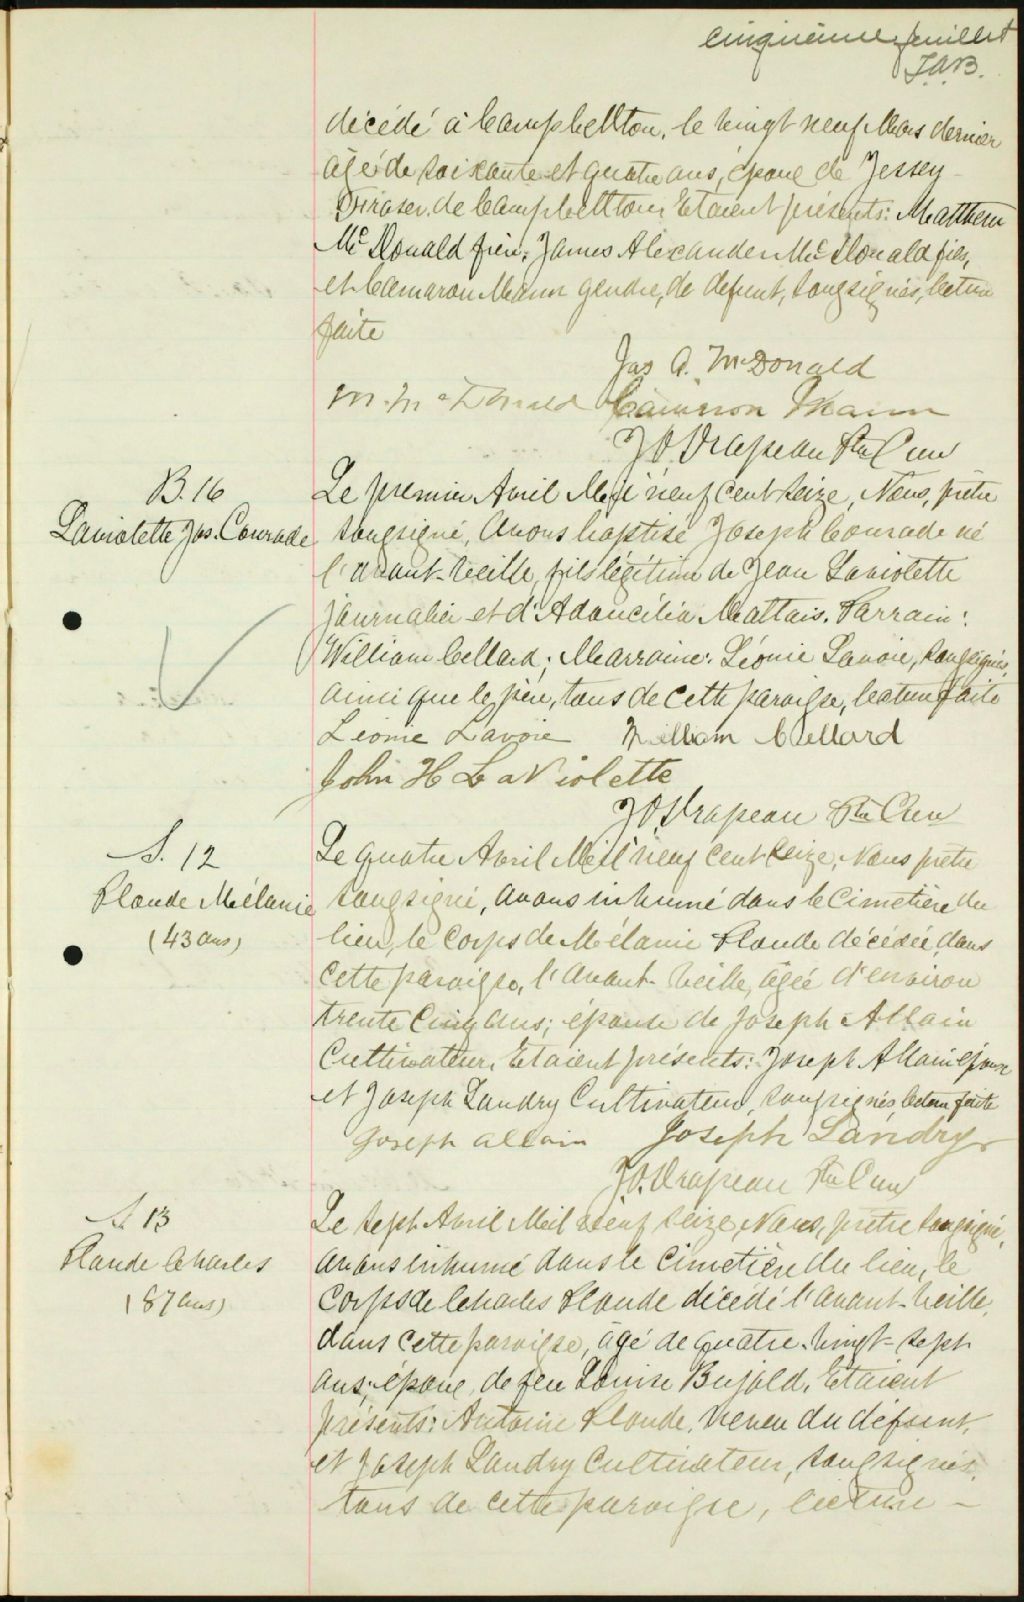 cinquième feuillet
J.A.B.
décédé à Campbellton, le vingt neuf Mars dernier
âgé de soixante et quatre ans, époux de Jessey
Fraser, de Campbellton. Etaient présents: Matthew
McDonald frère; James Alexander McDonald fils,
et Camaron Mann gendre, de defunt, soussignés, lecture
faite
Jas A. McDonald
M. McDonald Cameron Mann
J.O. Drapeau Ptre Curé
B. 16
Laviolette Jos. Conrade
Le premier Avril Mil neuf cent seize, Nous, prêtre
soussigné, avons baptisé Joseph Conrade né
l'avant-veille, fils légitime de Jean Laviolette
journalier et d'Adoucilia Mallais. Parrain:
William Cellard; Marraine: Léonie Lavoie, soussignés
ainsi que le père, tous de cette paroisse, lecture faite
Léonie Lavoie William Cellard
John H LaViolette
J.O. Drapeau Ptre Curé
S. 12
Plaude Mélanie
(43 ans)
Le quatre Avril Mil neuf cent seize, Nous prêtre
soussigné, avons inhumé dans le cimetière du
lieu, le corps de Mélanie Plaude décédée, dans
cette paroisse, l'avant-veille, âgée d'environ
trente cinq ans; épouse de Joseph Allain
Cultivateur, Etaient présents: Joseph Allain époux
et Joseph Landry Cultivateur, soussignés, lecture faite
Joseph Allain Joseph Landry
J.O. Drapeau Ptre Curé
S. 13
Plaude Charles
(87 ans)
Le sept Avril Mil neuf seize, Nous, prêtre soussigné,
avons inhumé dans le cimetière du lieu, le
corps de Charles Plaude décédé l'avant-veille,
dans cette paroisse, âgé de quatre-vingt-sept
ans; époux, de feu Louise Bujold, Etaient
présents: Antoine Plaude, neveu du défunt,
et Joseph Landry Cultivateur, soussignés,
tous de cette paroisse, lecture –